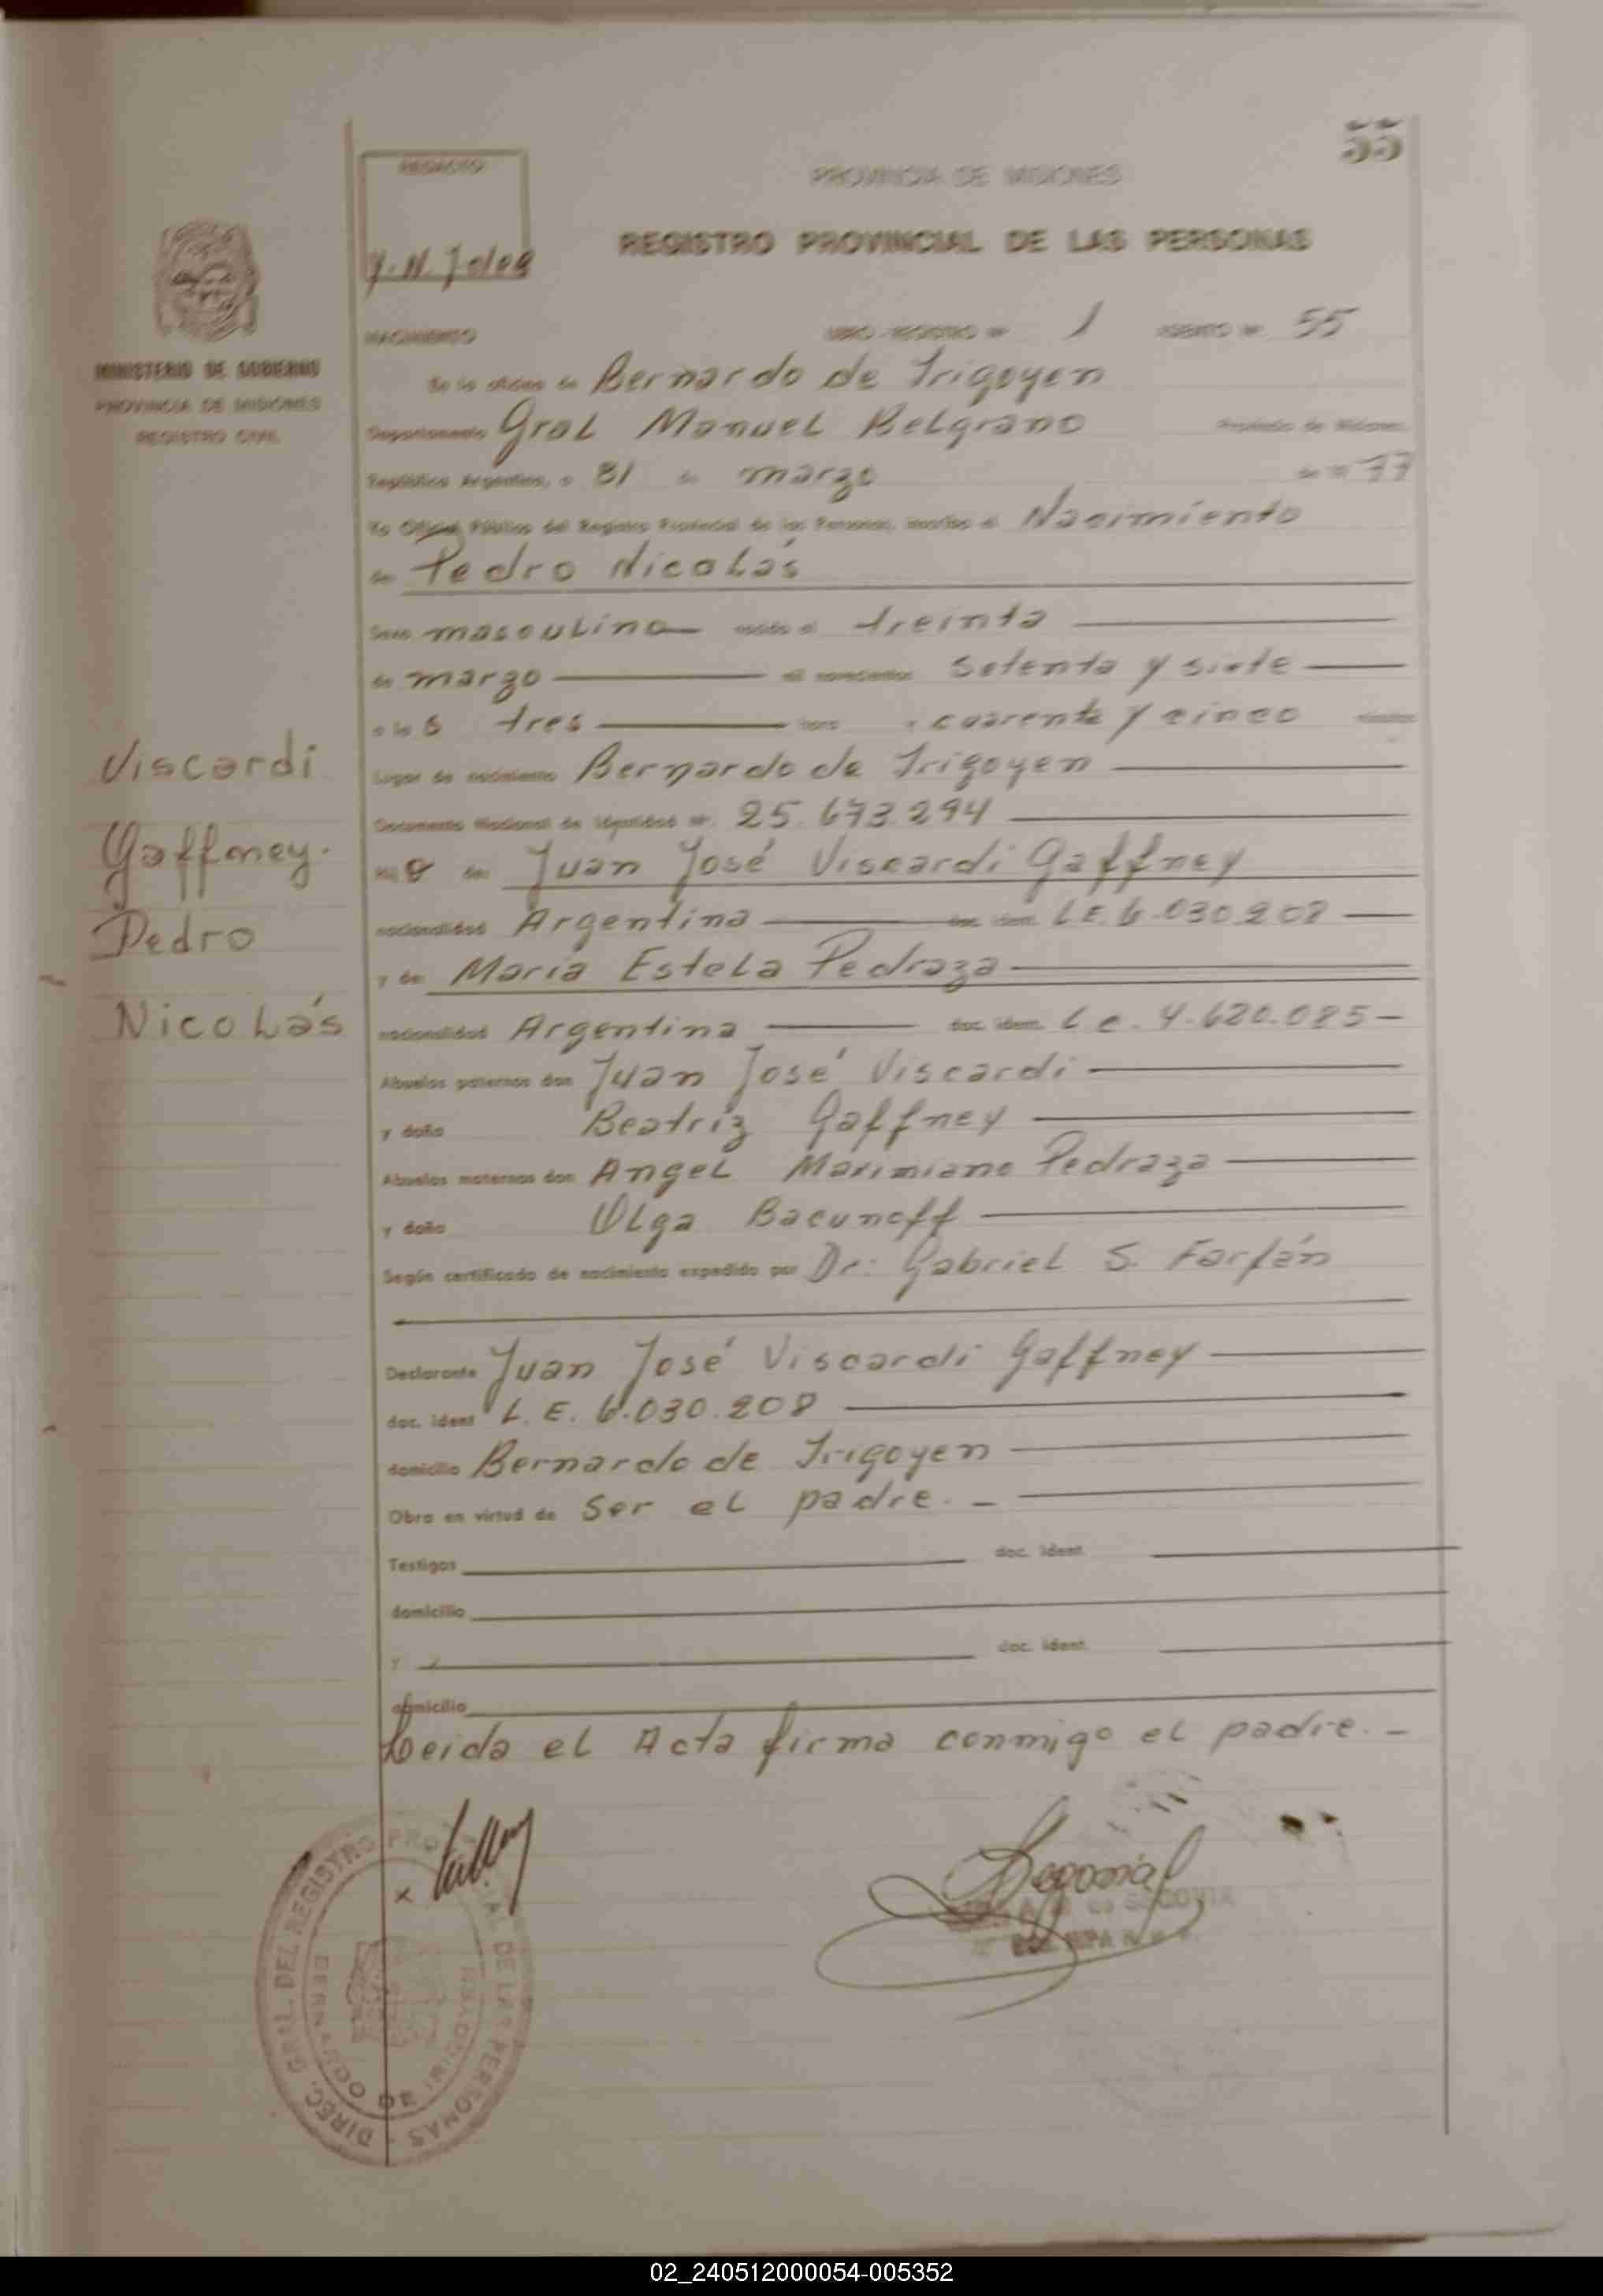 55
REDACTO
PROVINCIA DE MISIONES
REGISTRO PROVINCIAL DE LAS PERSONAS
NACIMIENTO LIBRO REGISTRO Nº 1 ASIENTO Nº 55
MINISTERIO DE GOBIERNO
PROVINCIA DE MISIONES
REGISTRO CIVIL
En la oficina de Bernardo de Irigoyen
Departamento Gral Manuel Belgrano Provincia de Misiones
República Argentina, a 31 de marzo de 19 77
Yo Oficial Público del Registro Provincial de las Personas, inscribo el Nacimiento
de Pedro Nicolás
Sexo masculino nacido el treinta
de marzo mil novecientos setenta y siete
a las tres hora y cuarenta y cinco minutos
Lugar de nacimiento Bernardo de Irigoyen
Documento Nacional de Identidad Nº 25.673.294
Hijo de Juan José Viscardi Gaffney
nacionalidad Argentina doc. ident. L.E. 6.030.208
y de María Estela Pedraza
nacionalidad Argentina doc. ident. L.C. 4.620.085
Abuelos paternos don Juan José Viscardi
y doña Beatriz Gaffney
Abuelos maternos don Angel Maximiano Pedraza
y doña Olga Bacunoff
Según certificado de nacimiento expedido por Dr: Gabriel S. Farfán
Declarante Juan José Viscardi Gaffney
doc. ident L.E. 6.030.208
domicilio Bernardo de Irigoyen
Obra en virtud de ser el padre.-
Testigos doc. ident.
domicilio
y doc. ident.
domicilio
Leida el Acta firma conmigo el padre.-
Viscardi
Gaffney.
Pedro
Nicolás
DIREC. GRAL. DEL REGISTRO PROVINCIAL DE LAS PERSONAS
SEGOVIA
02_240512000054-005352